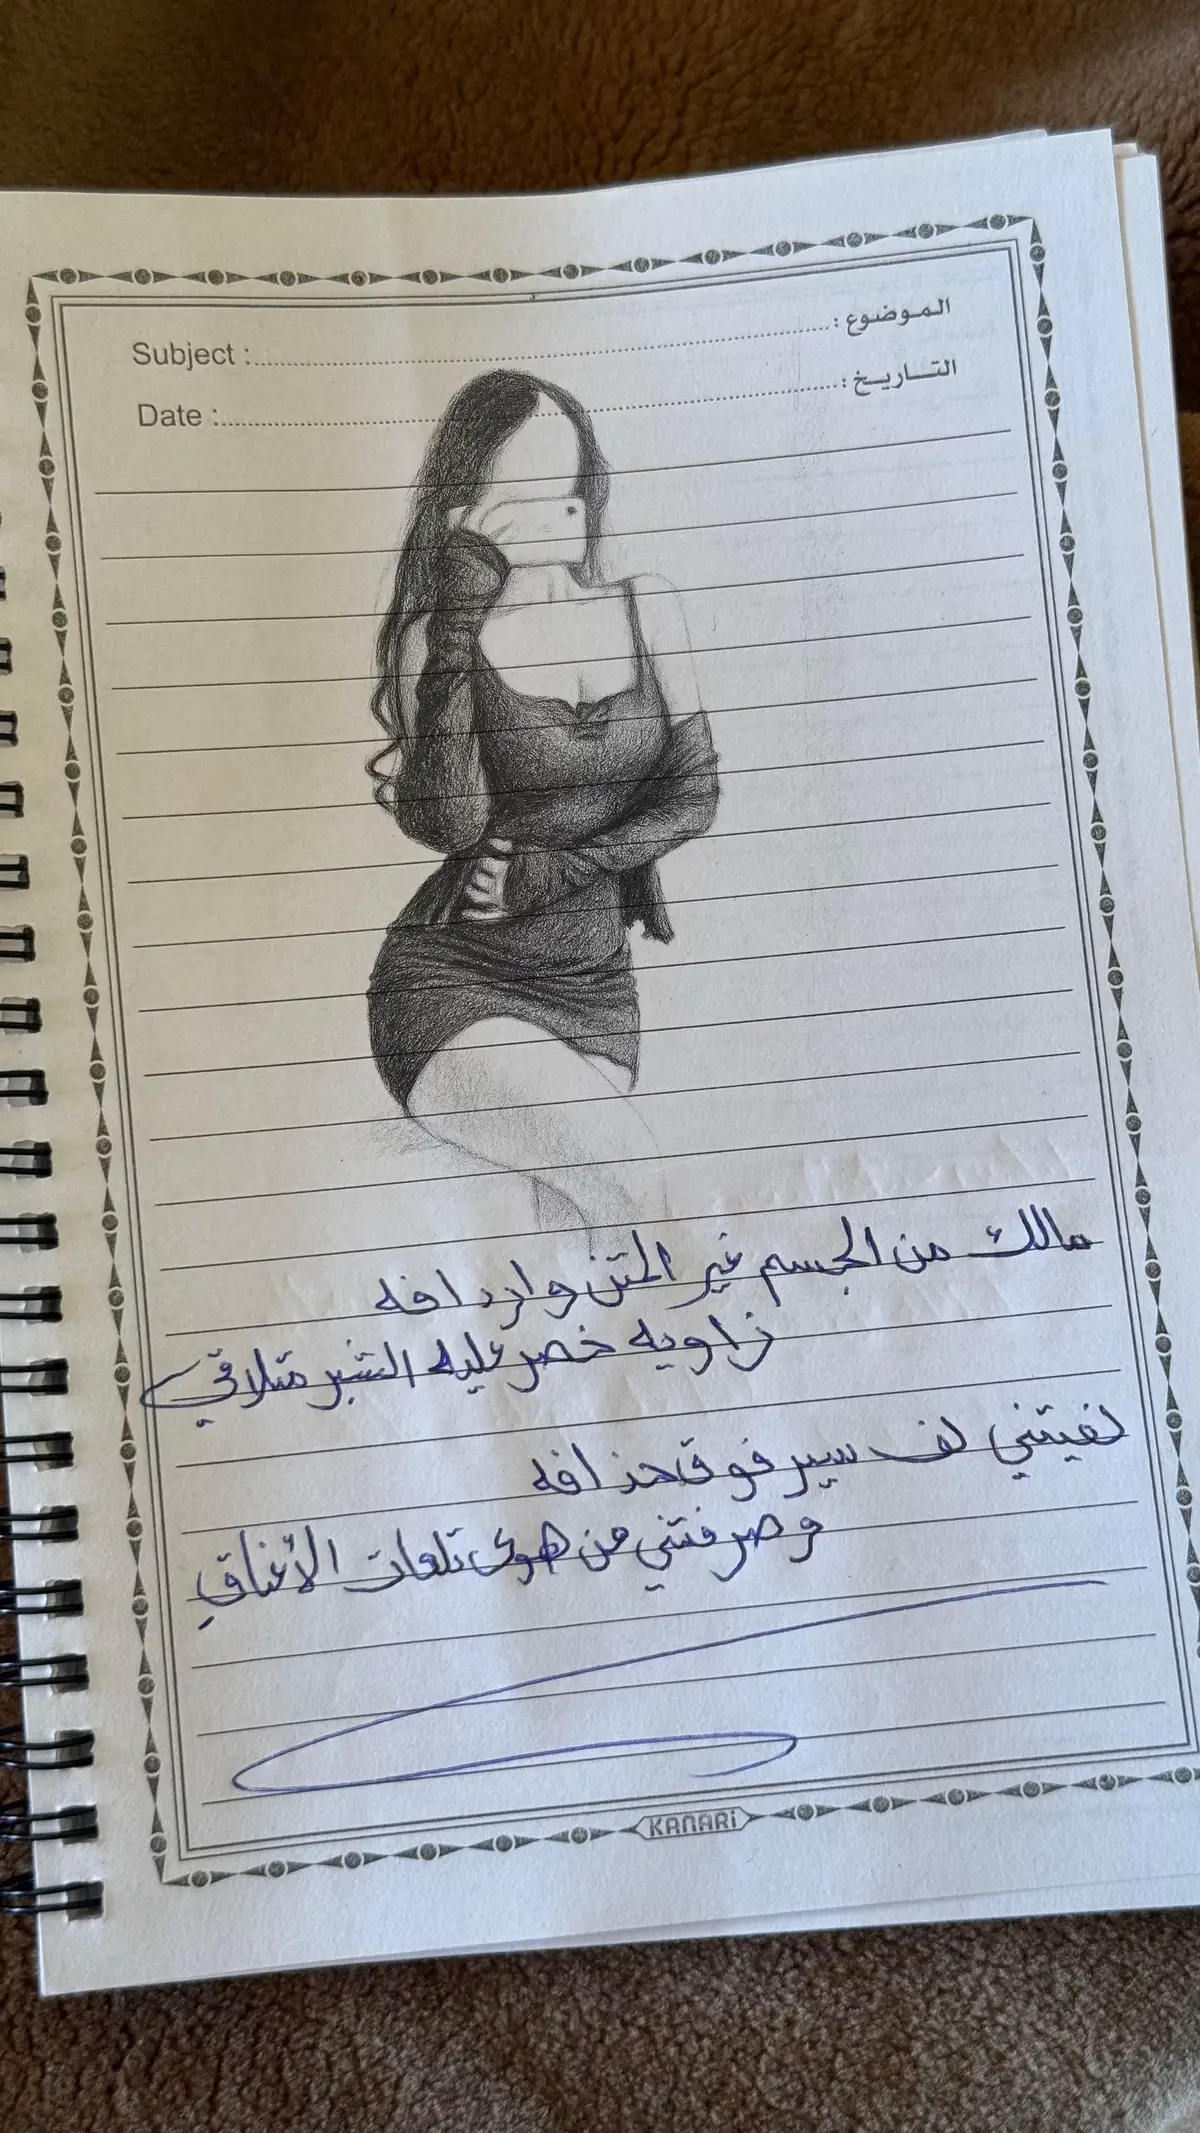 الموضوع :
Subject :
التاريخ :
Date :
مالك من الجسم غير المتن واردافه
زاويه خصر عليه الشبر متلاقي
لفيتني لف سير فوق حذافه
وصرفتني من هوى تلعات الأعناق
KANARi